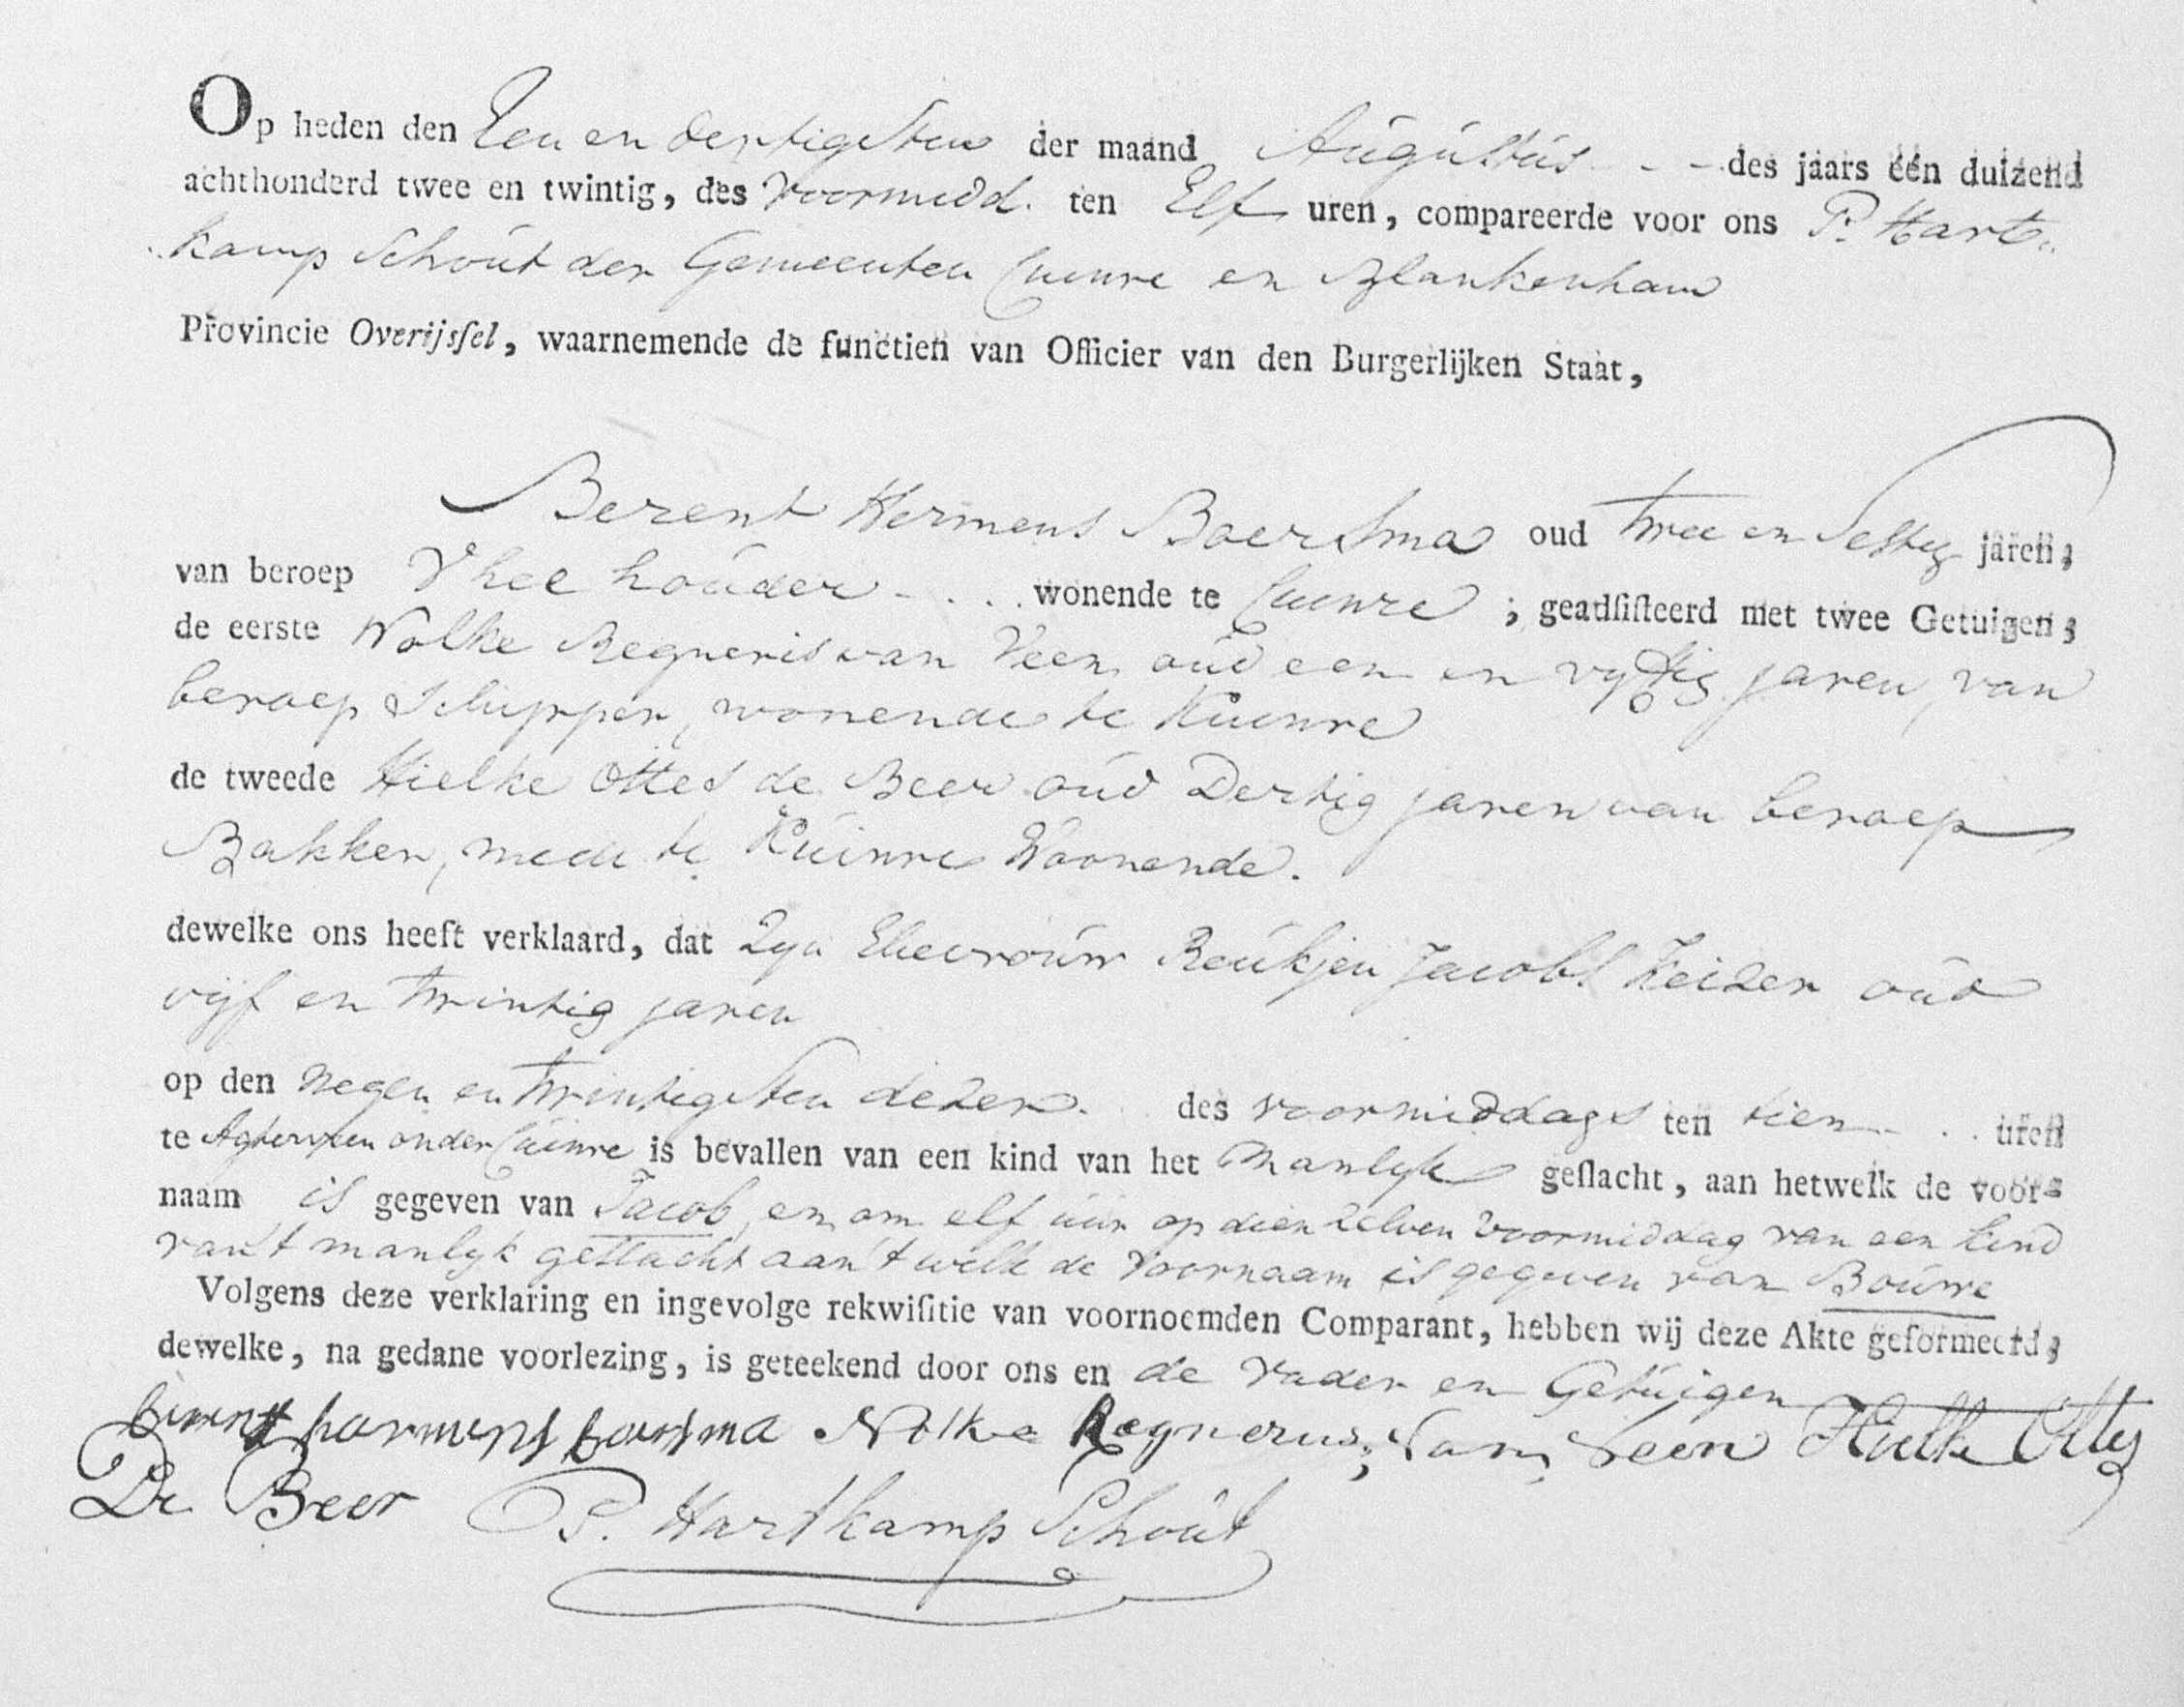 Op heden den Een en dertigsten der maand Augustus - - des jaars één duizend
achthonderd twee en twintig, des voormidd. ten Elf uren, compareerde voor ons P. Hart-
kamp Schout der Gemeenten Cuinre en Blankenham
Provincie Overijssel, waarnemende de functien van Officier van den Burgerlijken Staat,
Berent Hermens Boersma oud twee en Sestig jaren,
van beroep Vhee houder - . . . wonende te Cuinre ; geadsisteerd met twee Getuigen,
de eerste Nolke Regneris van Veen oud een en vyftig jaren, van
beroep Schipper, wonende te Kuinre
de tweede Hielke Ottes de Beer oud Dertig jaren van beroep
Bakker, mede te Kuinre Woonende.
dewelke ons heeft verklaard, dat Zyn Ehevrouw Reukjen Jacobs Keizer oud
vijf en twintig jaren
op den Negen en twintigsten dezer. des voormiddags ten tien - . . uren
te Agterveen onder Cuinre is bevallen van een kind van het Manlyk geslacht, aan hetwelk de voor-
naam is gegeven van Jacob, en om elf uur op dien zelven voormiddag van een kind
van't manlyk geslacht aan't welk de Voornaam is gegeven van Bouwe
Volgens deze verklaring en ingevolge rekwisitie van voornoemden Comparant, hebben wij deze Akte geformeerd,
dewelke, na gedane voorlezing, is geteekend door ons en de Vader en Getuigen
berent harmens boersma Nolke Regnerus van Veen Hielke Ottes
De Beer P. Hartkamp Schout